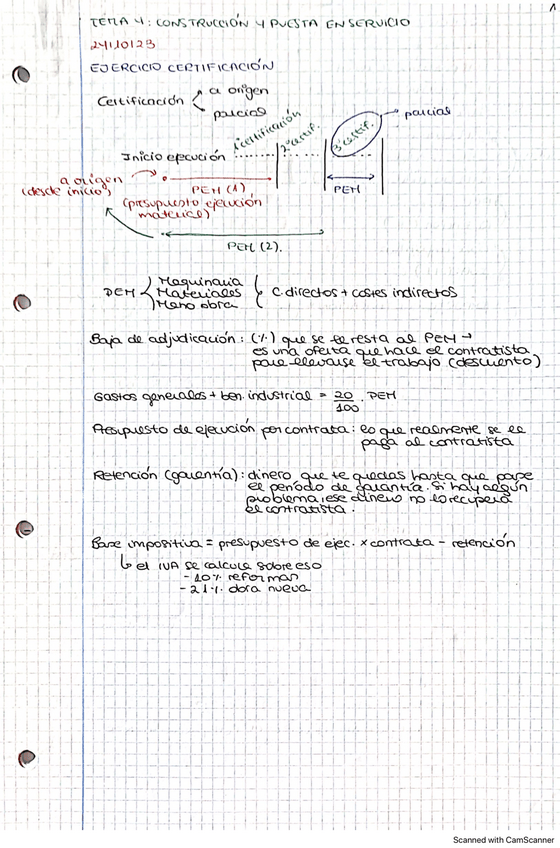 1
TEMA 4: CONSTRUCCIÓN Y PUESTA EN SERVICIO
24/10/23
EJERCICIO CERTIFICACIÓN
Certificación
a origen
parcial
1ºcertificación
2ºcertif.
3ºcertif.
parcial
Inicio ejecución
a origen
(desde inicio)
PEM (1)
(presupuesto ejecución
material)
PEM
PEM (2).
PEM
Maquinaria
Materiales
Mano obra
C. directos + costes indirectos
Baja de adjudicación: (%) que se le resta al PEM →
es una oferta que hace el contratista
para llevarse el trabajo (descuento)
Gastos generales + ben. industrial = 20/100 . PEM
Presupuesto de ejecución por contrata: lo que realmente se le
paga al contratista
Retención (garantía): dinero que te quedas hasta que pase
el período de garantía. Si hay algún
problema, ese dinero no lo recupera
el contratista.
Base impositiva = presupuesto de ejec. x contrata - retención
↳ el IVA se calcula sobre eso
- 10% reformas
- 21% obra nueva
Scanned with CamScanner